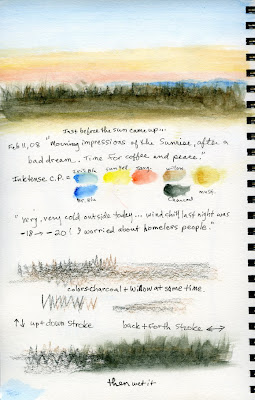 Just before the sun came up...
Feb 11, 08 "Morning impressions of the Sunrise, after a
bad dream. Time for coffee and peace."
Inktense C.P. = Iris Blu sun yel. Tang. willow
Br. Blu Charcoal must.
"Very, very cold outside today... wind chill last night was
-18 → -20! I worried about homeless people."
colors charcoal + willow at same time.
↑↓ up + down stroke back + forth stroke ↔
then wet it